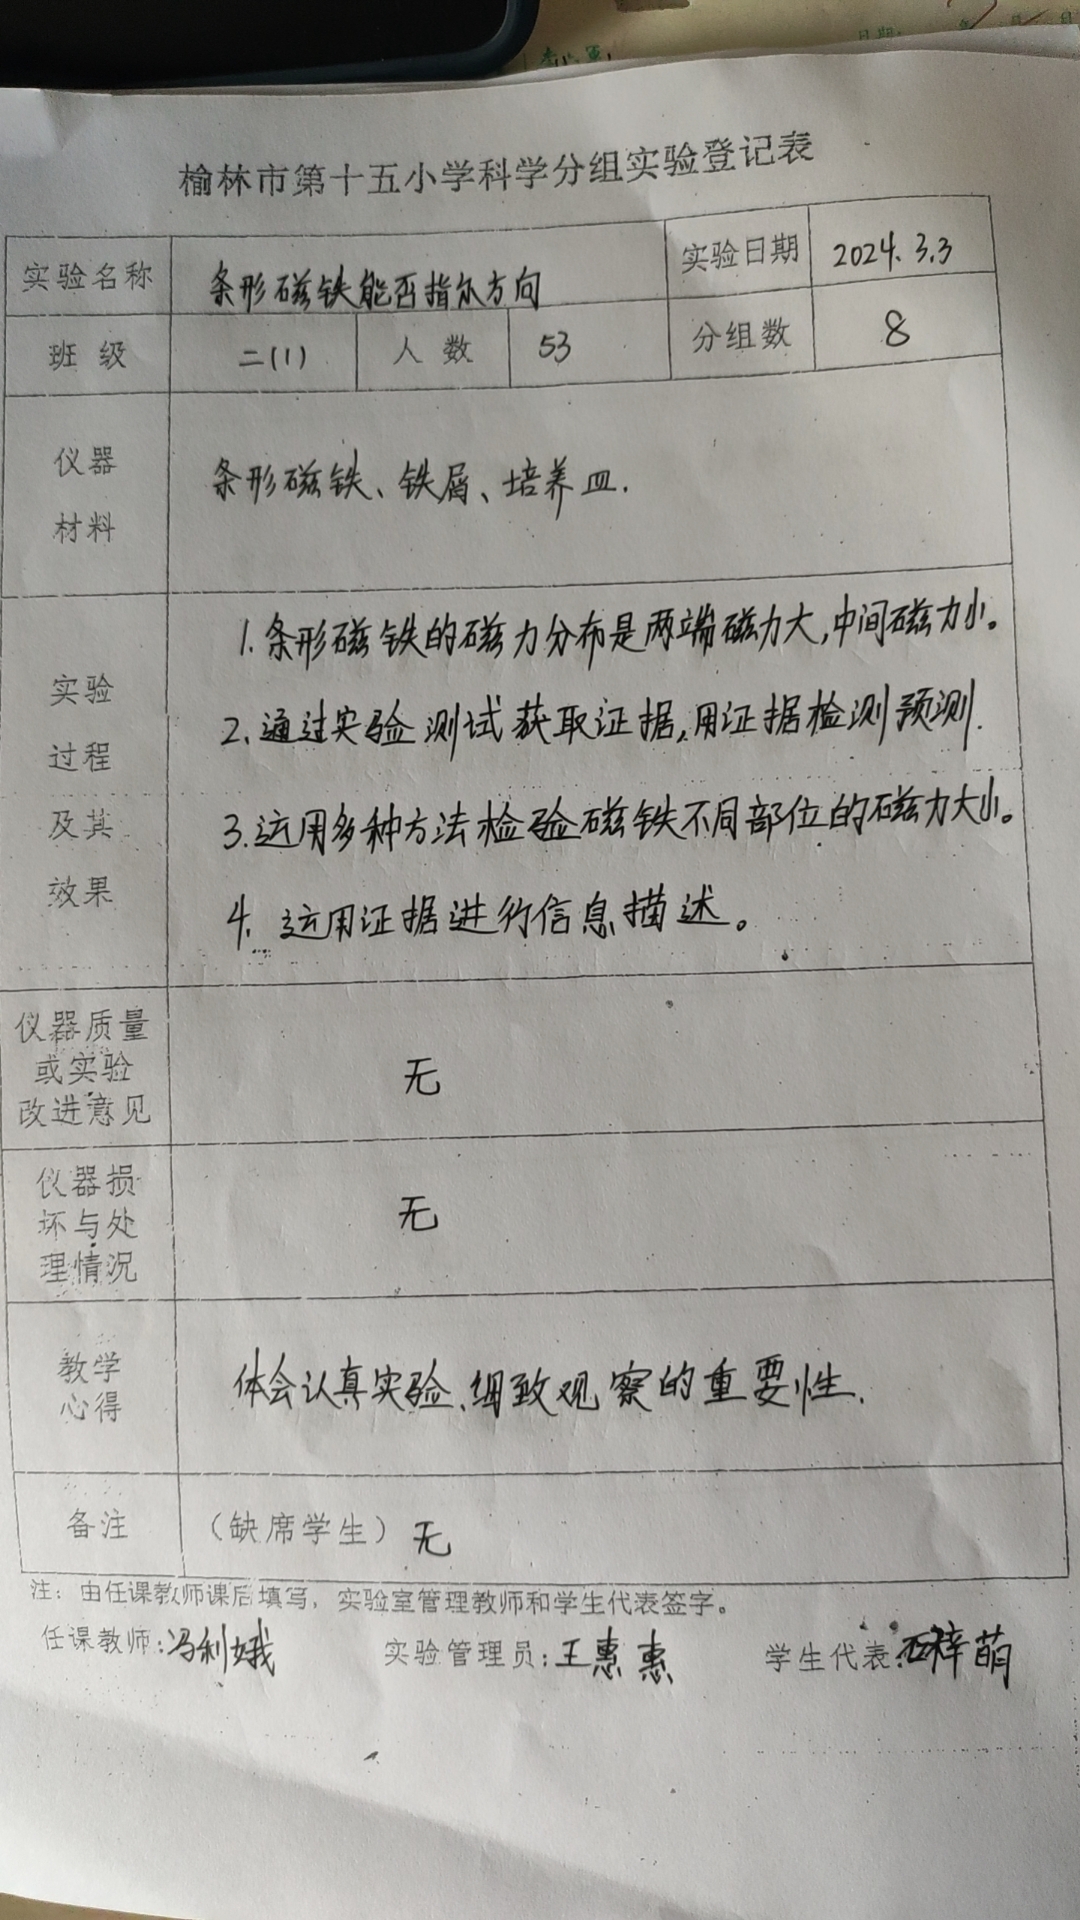 榆林市第十五小学科学分组实验登记表
实验名称 条形磁铁能否指示方向 实验日期 2024.3.3
班级 二(1) 人数 53 分组数 8
仪器
材料
条形磁铁、铁屑、培养皿.
实验
过程
及其
效果
1.条形磁铁的磁力分布是两端磁力大,中间磁力小。
2、通过实验测试获取证据,用证据检测预测.
3.运用多种方法检验磁铁不同部位的磁力大小。
4、运用证据进行信息描述。
仪器质量
或实验
改进意见
无
仪器损
坏与处
理情况
无
教学
心得
体会认真实验、细致观察的重要性.
备注 （缺席学生）无
注：由任课教师课后填写，实验室管理教师和学生代表签字。
任课教师:冯利娥 实验管理员:王惠惠 学生代表:石梓萌